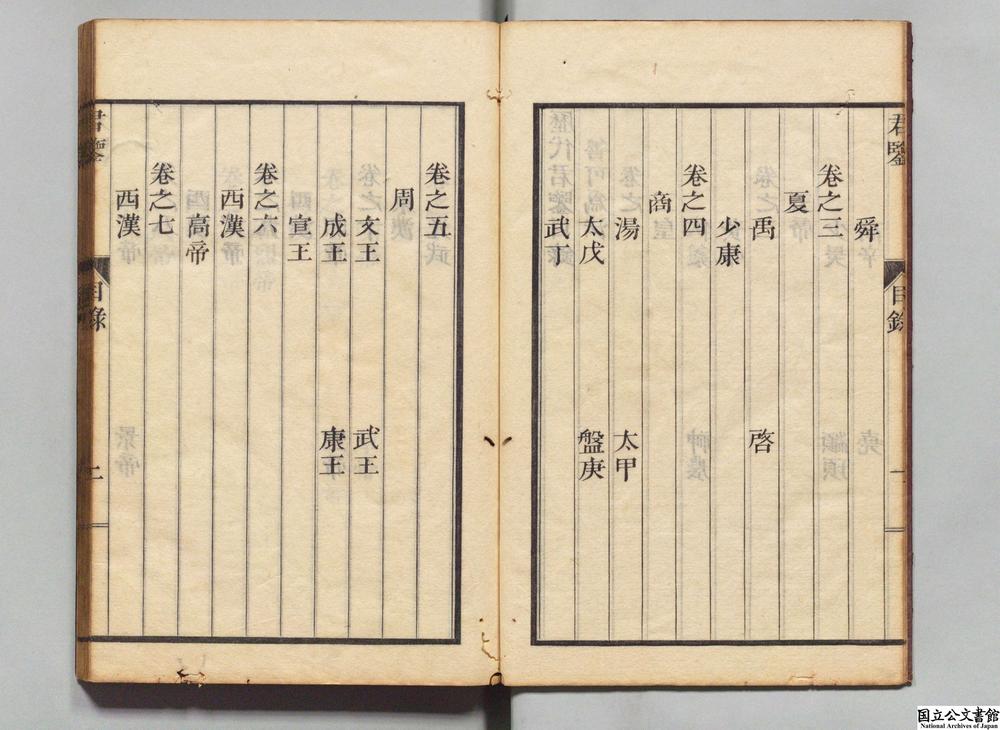 舜
卷之三
夏
禹 啓
少康
卷之四
商
湯 太甲
太戊 盤庚
武丁
君鑒
目錄
卷之五
周
文王 武王
成王 康王
宣王
卷之六
西漢
高帝
卷之七
西漢
君鑒
目錄
二
国立公文書館
National Archives of Japan